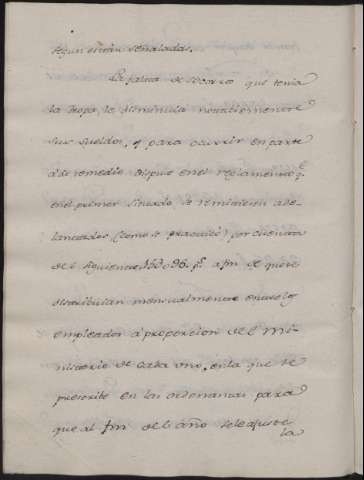 segun están señaladas.
La falta de socorro que tenia
la tropa, le disminuia notablemente
sus sueldos, y para ocurrir en parte
à su remedio dispuse en el reglamento q.e
en el primer situado se remitiesen ade-
lantados (como se practicó) por cuenta
del siguiente 160096 p.s a fin de que se
distribuian mensualmente entre los
empleados à proporcion del Mi-
nisterio de cada uno, en la que se
prescribe en las ordenanzas para
que al fin del año se le ajuste
la